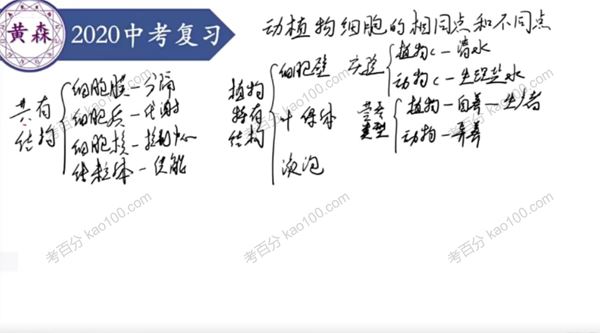 黄森
2020中考复习
动植物细胞的相同点和不同点
共有结构
细胞膜—分隔
细胞质—代谢
细胞核—控制中心
线粒体—供能
植物特有结构
细胞壁
叶绿体
液泡
实验
植物c—清水
动物c—生理盐水
营养类型
植物—自养—生产者
动物—异养
考百分 kao100.com
考百分 kao100.com
考百分 kao100.com
考百分 kao100.com
考百分 kao100.com
考百分 kao100.com